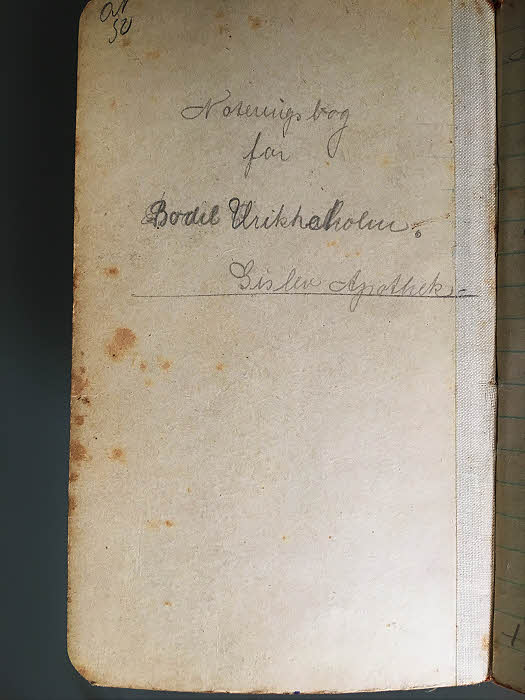 Noteringsbog
for
Bodil Ulrikkaholm.
Gislev Apothek.